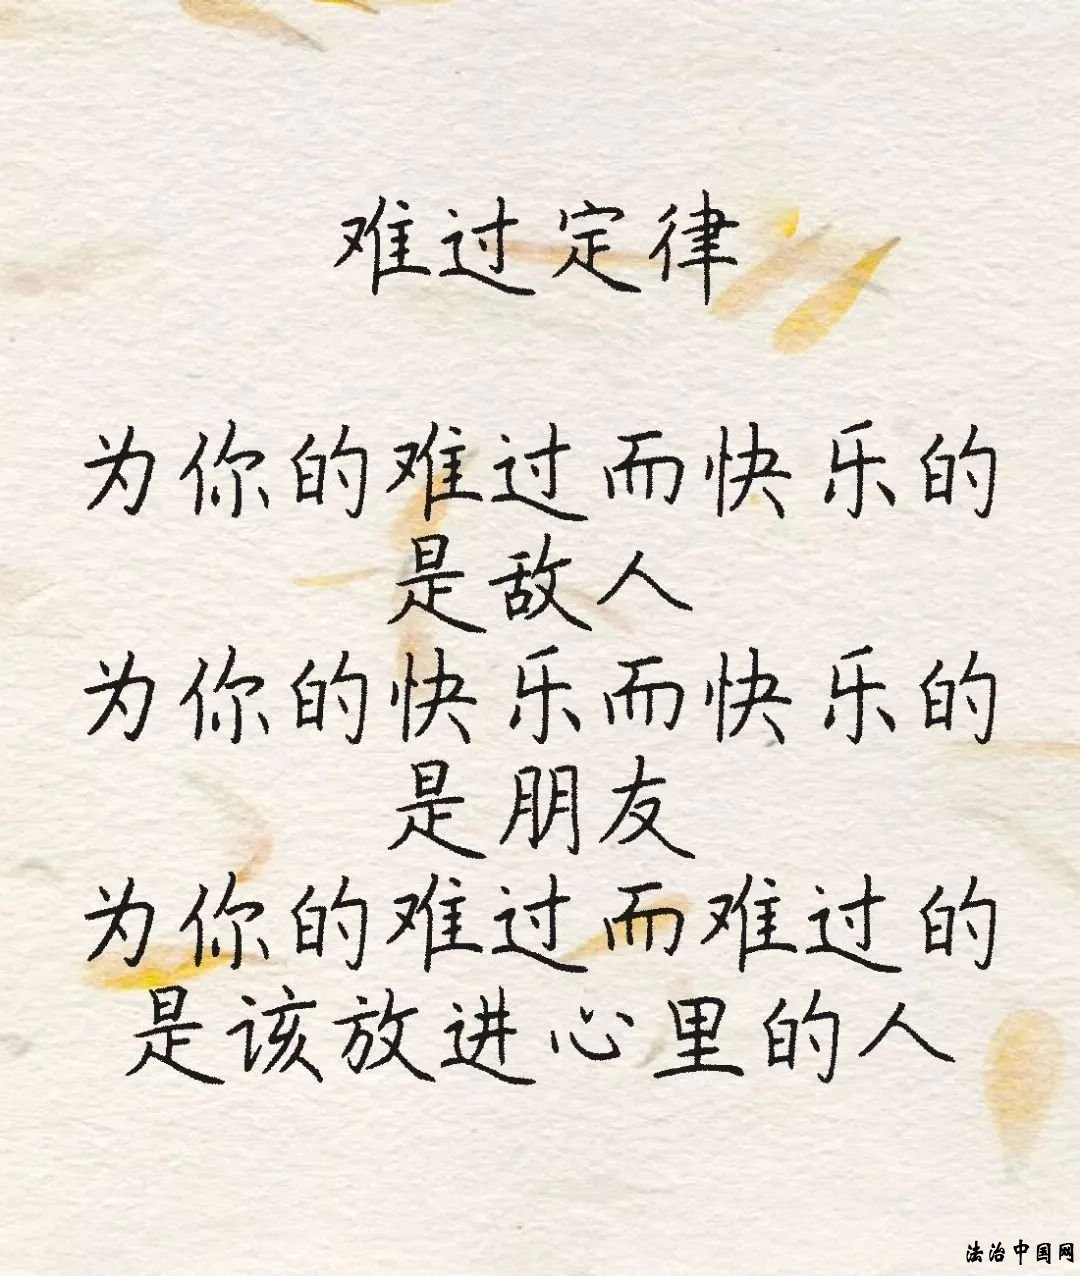 难过定律
为你的难过而快乐的
是敌人
为你的快乐而快乐的
是朋友
为你的难过而难过的
是该放进心里的人
法治中国网